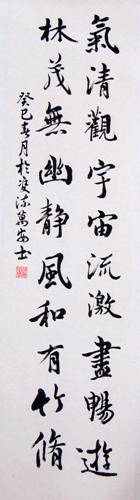 氣清觀宇宙流激盡暢遊
林茂無幽靜風和有竹脩
癸巳春月於雙流萬安士